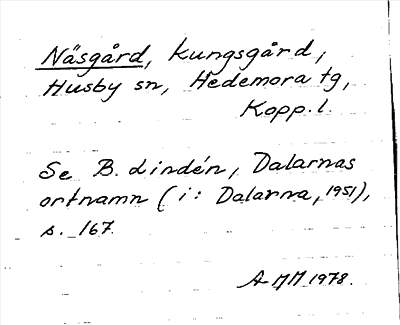 Näsgård, kungsgård,
Husby sn, Hedemora tg,
Kopp. l.
Se B. Lindén, Dalarnas
ortnamn (i: Dalarna, 1951),
s. 167.
AMM 1978.